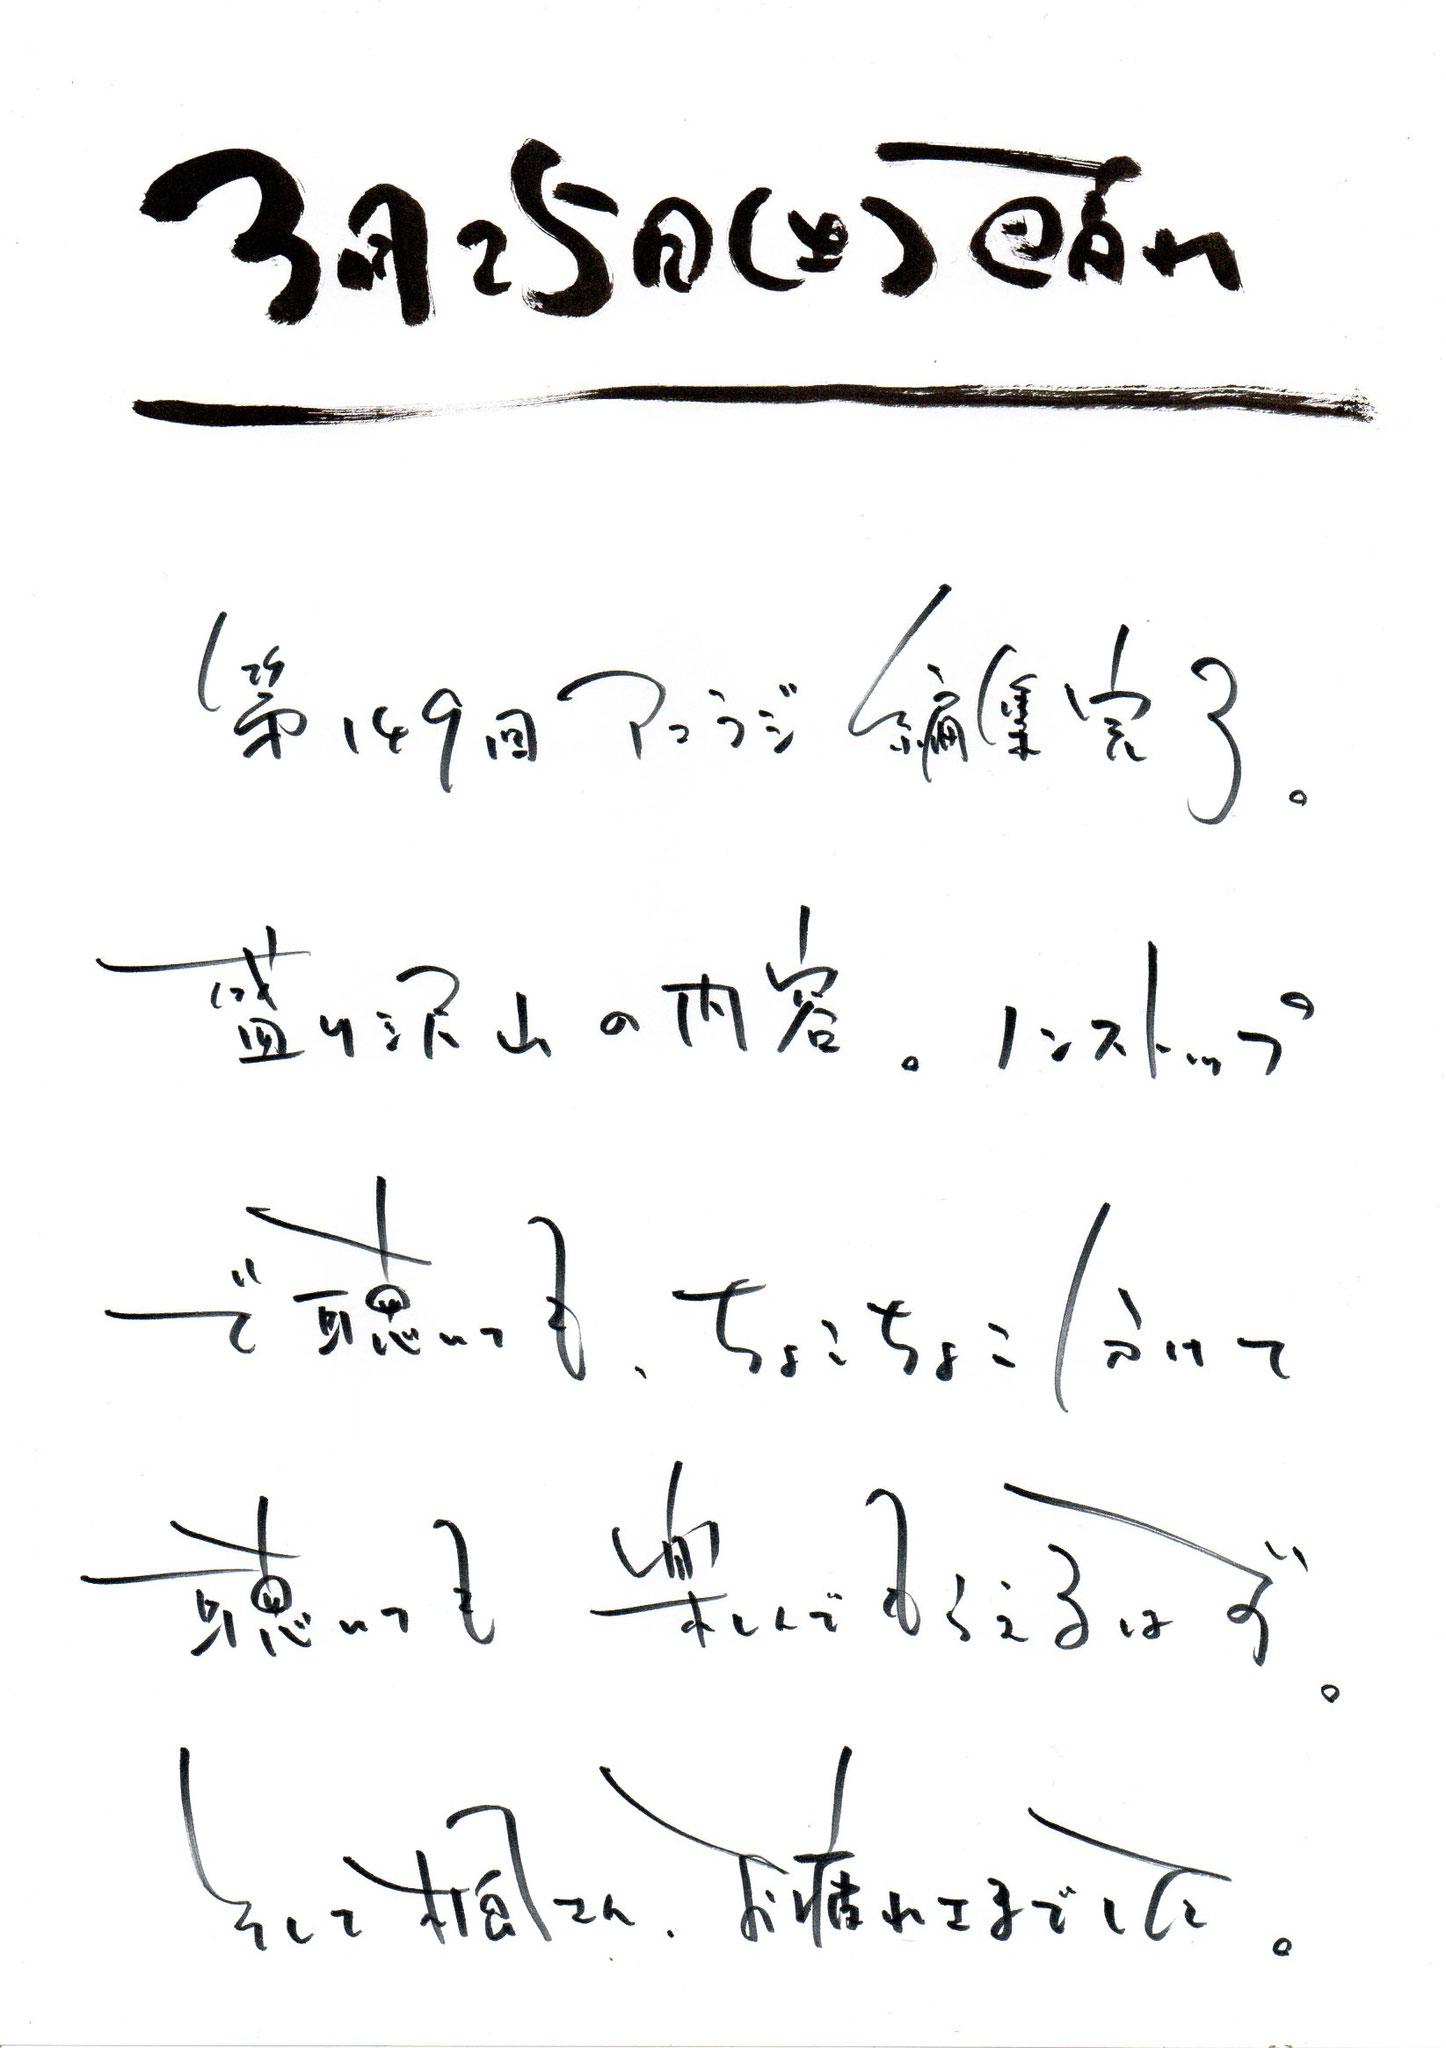 3月25日(土)晴れ
第149回アコラジ編集完了。
盛り沢山の内容。ノンストップ
で聴いても、ちょこちょこ分けて
聴いても楽しんでもらえるはず。
そして楓さん、お疲れさまでした。